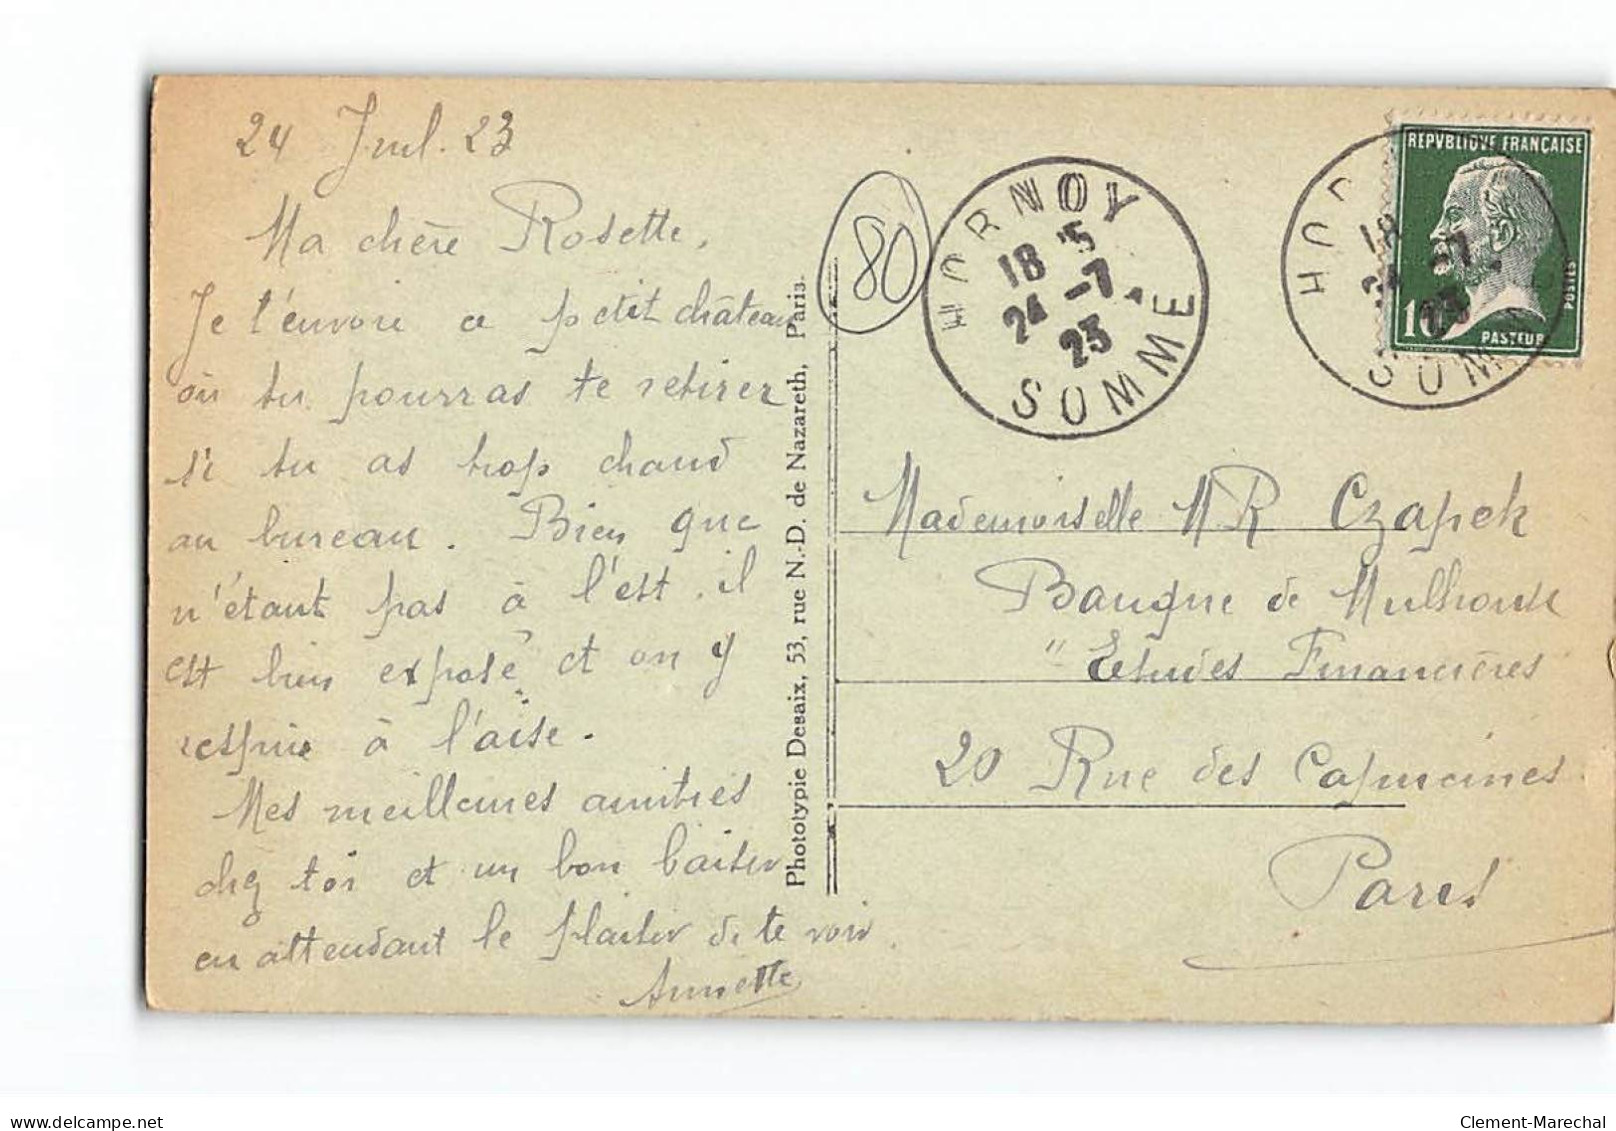 24 Juil. 23
Ma chère Rosette,
Je t'envoie ce petit château
où tu pourras te retirer
si tu as trop chaud
au bureau. Bien que
n'étant pas à l'est, il
est bien exposé et on y
respire à l'aise.
Mes meilleures amitiés
chez toi et un bon baiser
en attendant le plaisir de te voir.
Annette
Phototypie Desaix, 53, rue N.-D. de Nazareth, Paris.
80
HORNOY
18 15
24 -7
23
SOMME
REPVBLIQVE FRANÇAISE
POSTES
10
PASTEUR
HO
18
24 -7
23
SOMM
Mademoiselle MR Czapek
Banque de Mulhouse
"Etudes Financières
20 Rue des Capucines
Paris
delcampe.net
Clement-Marechal